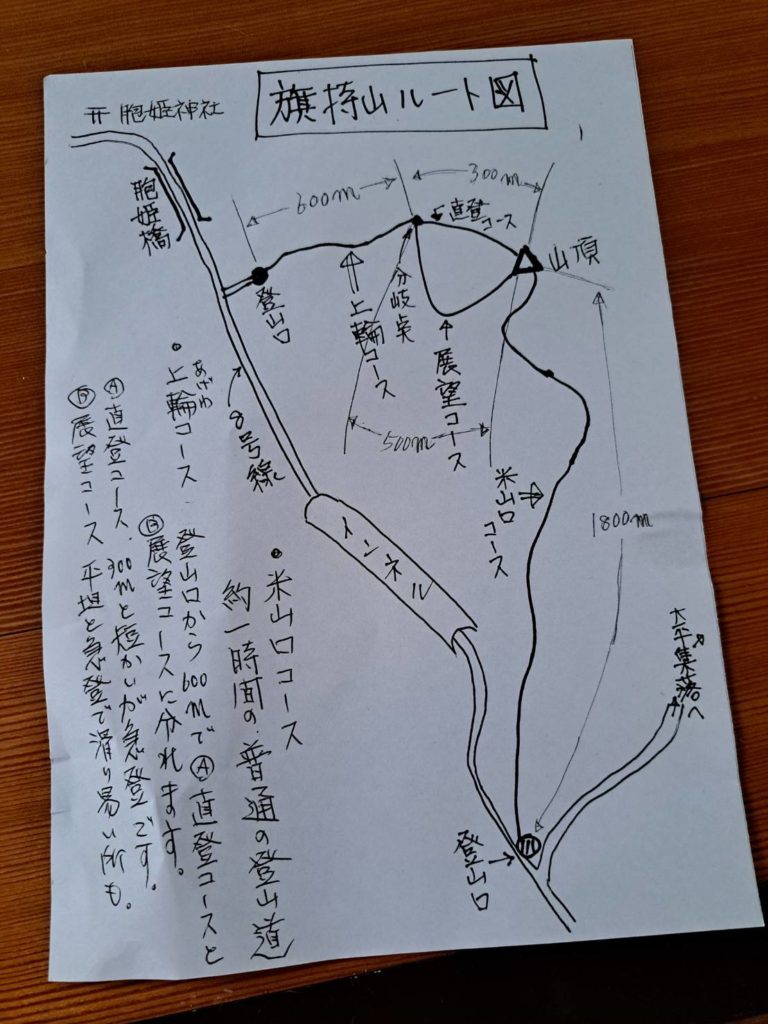 旗持山ルート図
⛩ 胞姫神社
胞姫橋
600m
300m
直登コース
山頂
分岐点
登山口
上輪コース
展望コース
500m
8号線
トンネル
米山口コース
1800m
大平集落へ
登山口
• 米山口コース
約一時間の普通の登山道
• 上輪コース
あげわ
登山口から600mでⒶ直登コースと
Ⓑ展望コースに分れます。
Ⓐ直登コース、300mと短かいが急登です。
Ⓑ展望コース 平坦と急登で滑り易い所も。